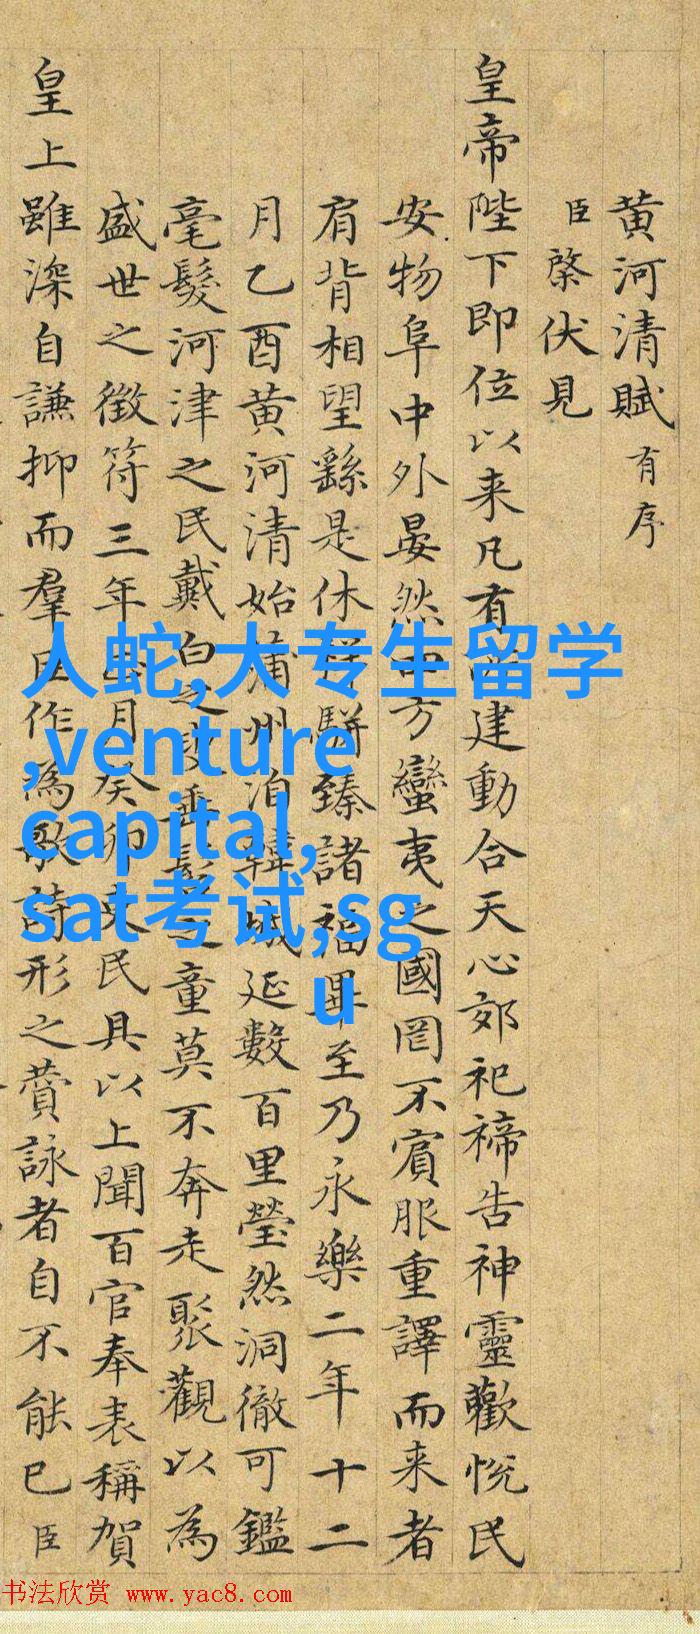 黄河清賦 有序
臣棨伏見
皇帝陛下即位以来凡有建動合天心郊祀禘告神靈歡悅民
安物阜中外晏然方蠻夷之國罔不賓服重譯而来者
肩背相望繇是休駢臻諸福畢至乃永樂二年十二
月乙酉黄河清始蒲州洎韓城延數百里瑩然洞徹可鑑
毫髮河津之民戴白之垂之童莫不奔走聚觀以為
盛世之徵符三年月癸卯民具以上聞百官奉表稱賀
皇上雖深自謙抑而羣臣作為歌詩形之賛詠者自不能已臣
人蛇,大专生留学
,venture
capital,
sat考试,sg
u
书法欣赏 www.yac8.com